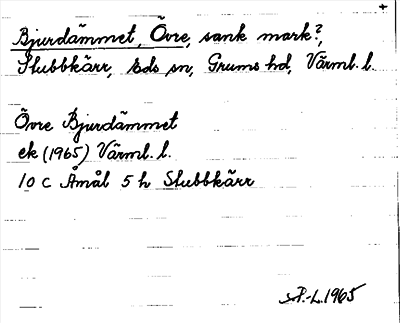 Bjurdämmet, Övre, sank mark?,
Stubbkärr, Eds sn, Grums hd, Värml. l.
Övre Bjurdämmet
ek (1965) Värml. l.
10 C Åmål 5 h Stubbkärr
P.-L. 1965